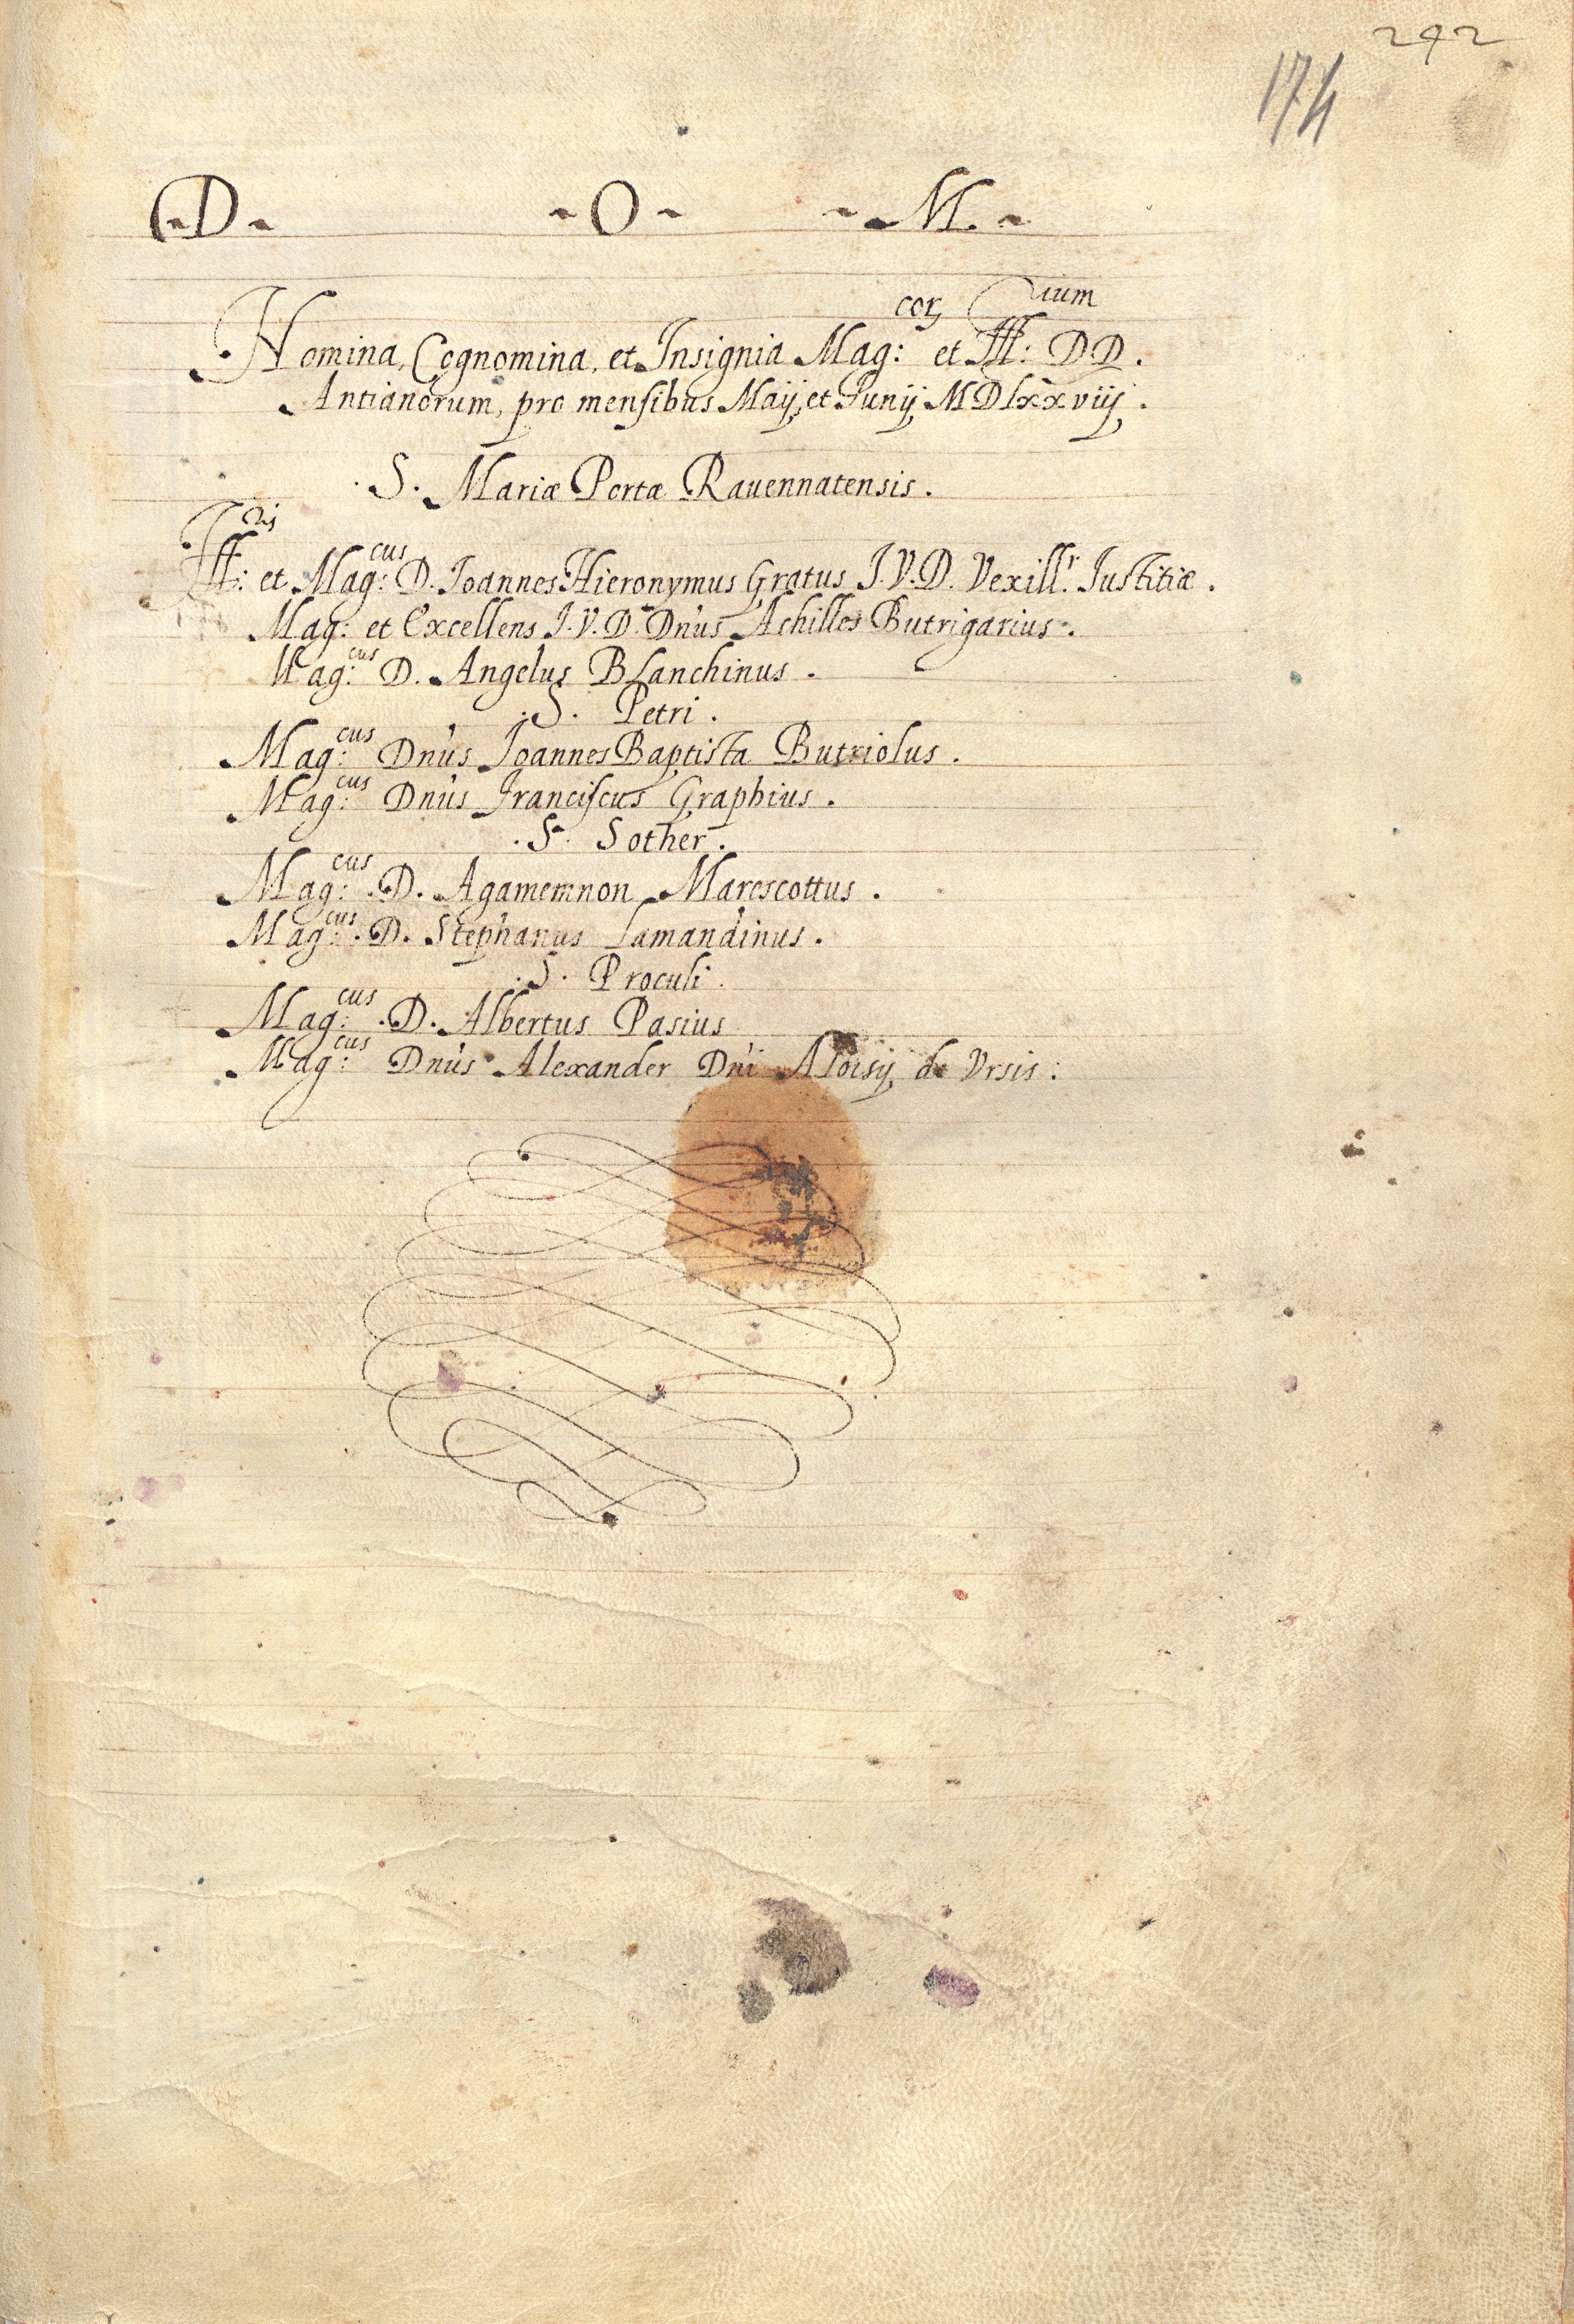 242
174
D. O. M.
Nomina, Cognomina, et Insignia Mag:corum et Ill:rium DD.
Antianorum, pro mensibus Maij, et Junij MDlxxviij.
.S. Mariæ Portæ Rauennatensis.
Ill:ris et Mag:cus D. Joannes Hieronymus Gratus J.V.D. Vexill:r Justitiæ.
Mag: et Excellens J.V.D. Dnus Achilles Butrigarius.
Mag:cus D. Angelus Blanchinus.
.S. Petri.
Mag:cus Dnus Joannes Baptista Butriolus.
Mag:cus Dnus Franciscus Graphius.
.S. Sother.
Mag:cus .D. Agamemnon Marescottus.
Mag:cus .D. Stephanus Lamandinus.
.S. Proculi.
Mag:cus .D. Albertus Pasius
Mag:cus Dnus Alexander Dni Aloisij de Vrsis: